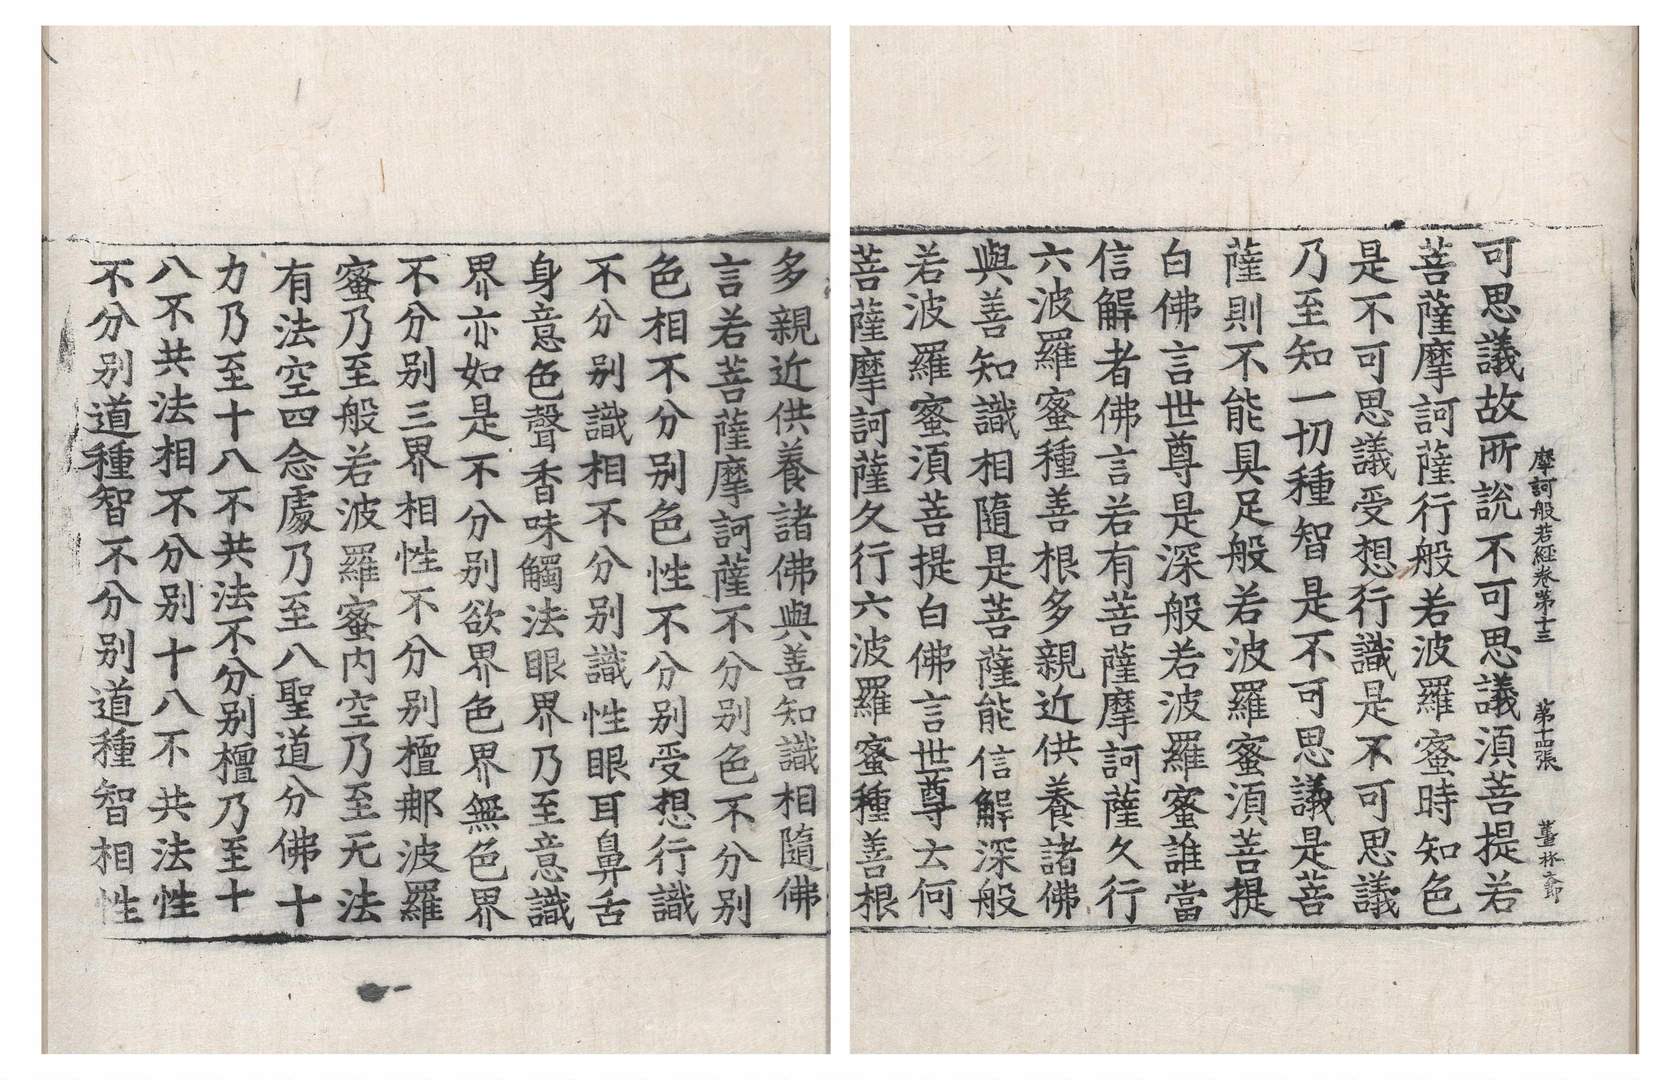 摩訶般若經卷第十三　第十四張
可思議故所說不可思議湏菩提若
菩薩摩訶薩行般若波羅蜜時知色
是不可思議受想行識是不可思議
乃至知一切種智是不可思議是菩
薩則不能具足般若波羅蜜湏菩提
白佛言世尊是深般若波羅蜜誰當
信解者佛言若有菩薩摩訶薩久行
六波羅蜜種善根多親近供養諸佛
與善知識相隨是菩薩能信解深般
若波羅蜜湏菩提白佛言世尊云何
菩薩摩訶薩久行六波羅蜜種善根
多親近供養諸佛與善知識相隨佛
言若菩薩摩訶薩不分別色不分別
色相不分別色性不分別受想行識
不分別識相不分別識性眼耳鼻舌
身意色聲香味觸法眼界乃至意識
界亦如是不分別欲界色界無色界
不分別三界相性不分別檀那波羅
蜜乃至般若波羅蜜內空乃至无法
有法空四念處乃至八聖道分佛十
力乃至十八不共法不分別檀乃至十
八不共法相不分別十八不共法性
不分別道種智不分別道種智相性